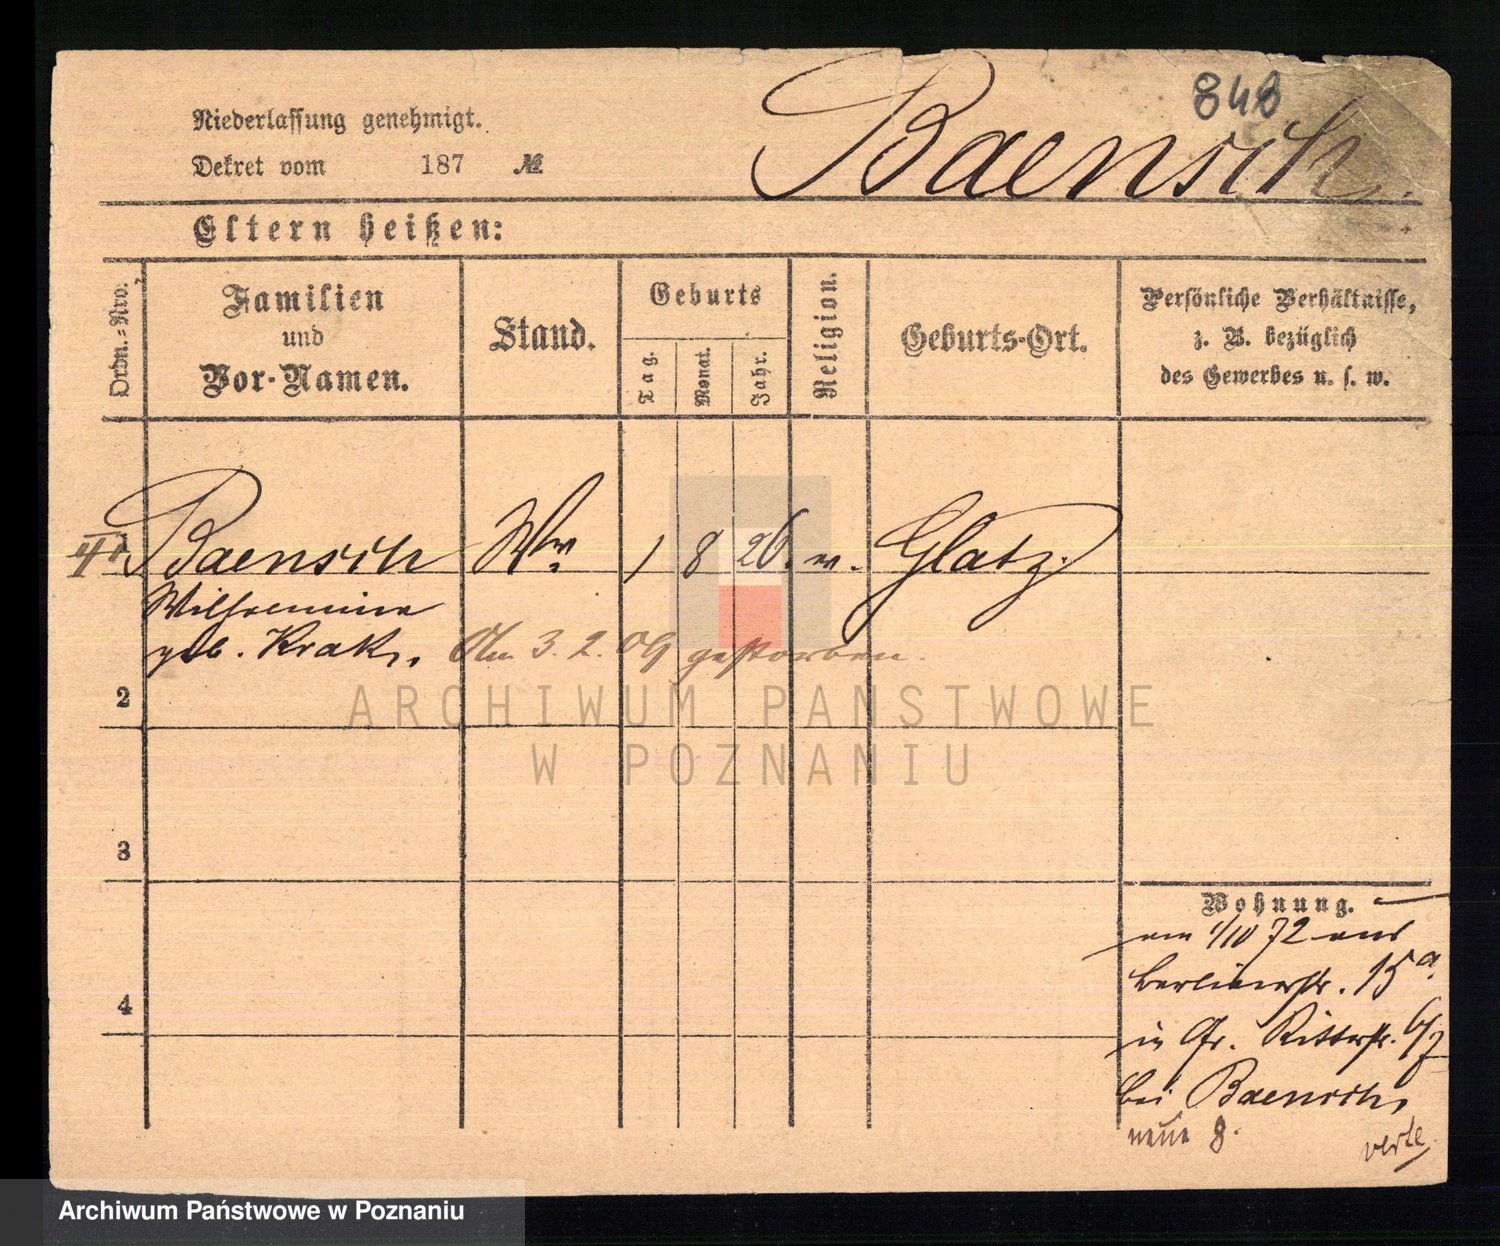 848
Baensch.
Niederlassung genehmigt.
Dekret vom 187 №
Eltern heißen:
Ordn.-Nro.
Familien
und
Vor-Namen.
Stand.
Geburts
Tag.
Monat.
Jahr.
Religion.
Geburts-Ort.
Persönliche Verhältnisse,
z. B. bezüglich
des Gewerbes u. s. w.
Baensch Ww. 1 8 26. Glatz.
Wilhelmine
geb. Krak. Am 3. 2. 09 gestorben.
2
3
4
Wohnung.
am 1/10 72 aus
Berlinerstr. 15a.
in Gr. Ritterstr. 6/7
bei Baensch,
neue 8.
ARCHIWUM PAŃSTWOWE
W POZNANIU
Archiwum Państwowe w Poznaniu